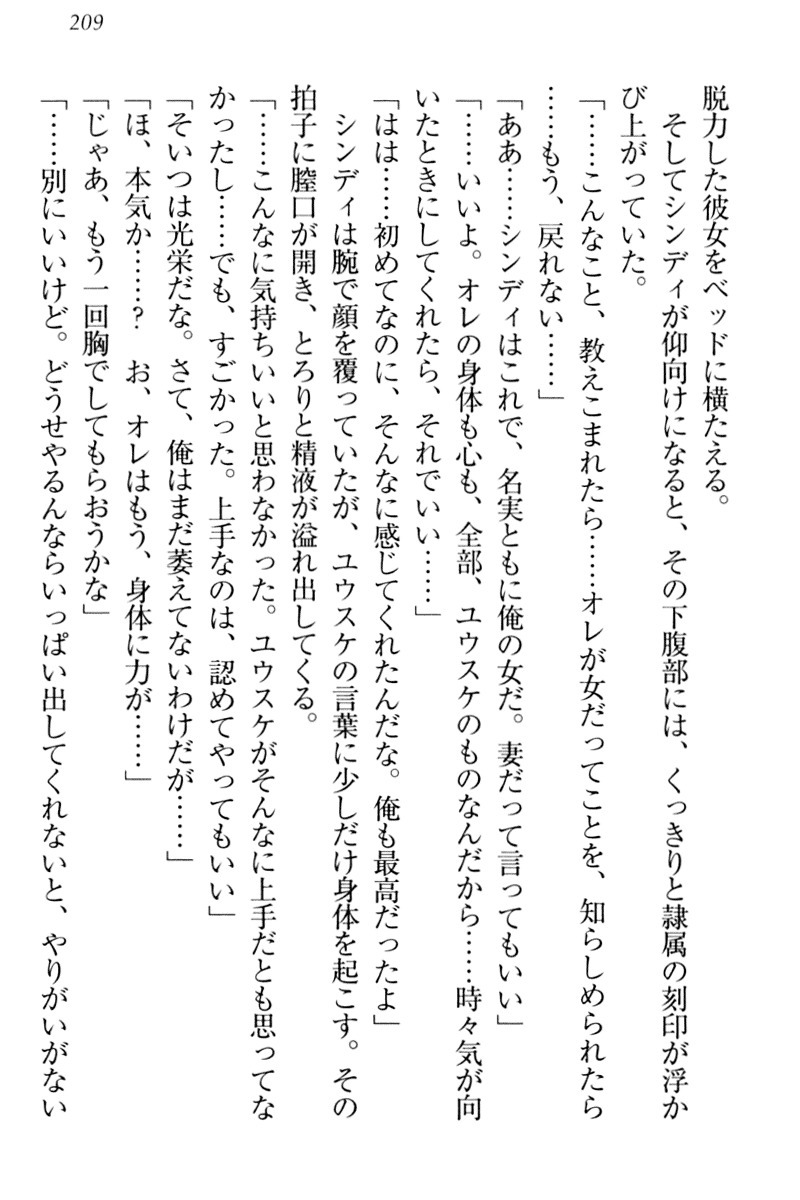 209
脱力した彼女をベッドに横たえる。
そしてシンディが仰向けになると、その下腹部には、くっきりと隷属の刻印が浮か
び上がっていた。
「……こんなこと、教えこまれたら……オレが女だってことを、知らしめられたら
……もう、戻れない……」
「ああ……シンディはこれで、名実ともに俺の女だ。妻だって言ってもいい」
「……いいよ。オレの身体も心も、全部、ユウスケのものなんだから……時々気が向
いたときにしてくれたら、それでいい……」
「はは……初めてなのに、そんなに感じてくれたんだな。俺も最高だったよ」
シンディは腕で顔を覆っていたが、ユウスケの言葉に少しだけ身体を起こす。その
拍子に膣口が開き、とろりと精液が溢れ出してくる。
「……こんなに気持ちいいと思わなかった。ユウスケがそんなに上手だとも思ってな
かったし……でも、すごかった。上手なのは、認めてやってもいい」
「そいつは光栄だな。さて、俺はまだ萎えてないわけだが……」
「ほ、本気か……?　お、オレはもう、身体に力が……」
「じゃあ、もう一回胸でしてもらおうかな」
「……別にいいけど。どうせやるんならいっぱい出してくれないと、やりがいがない